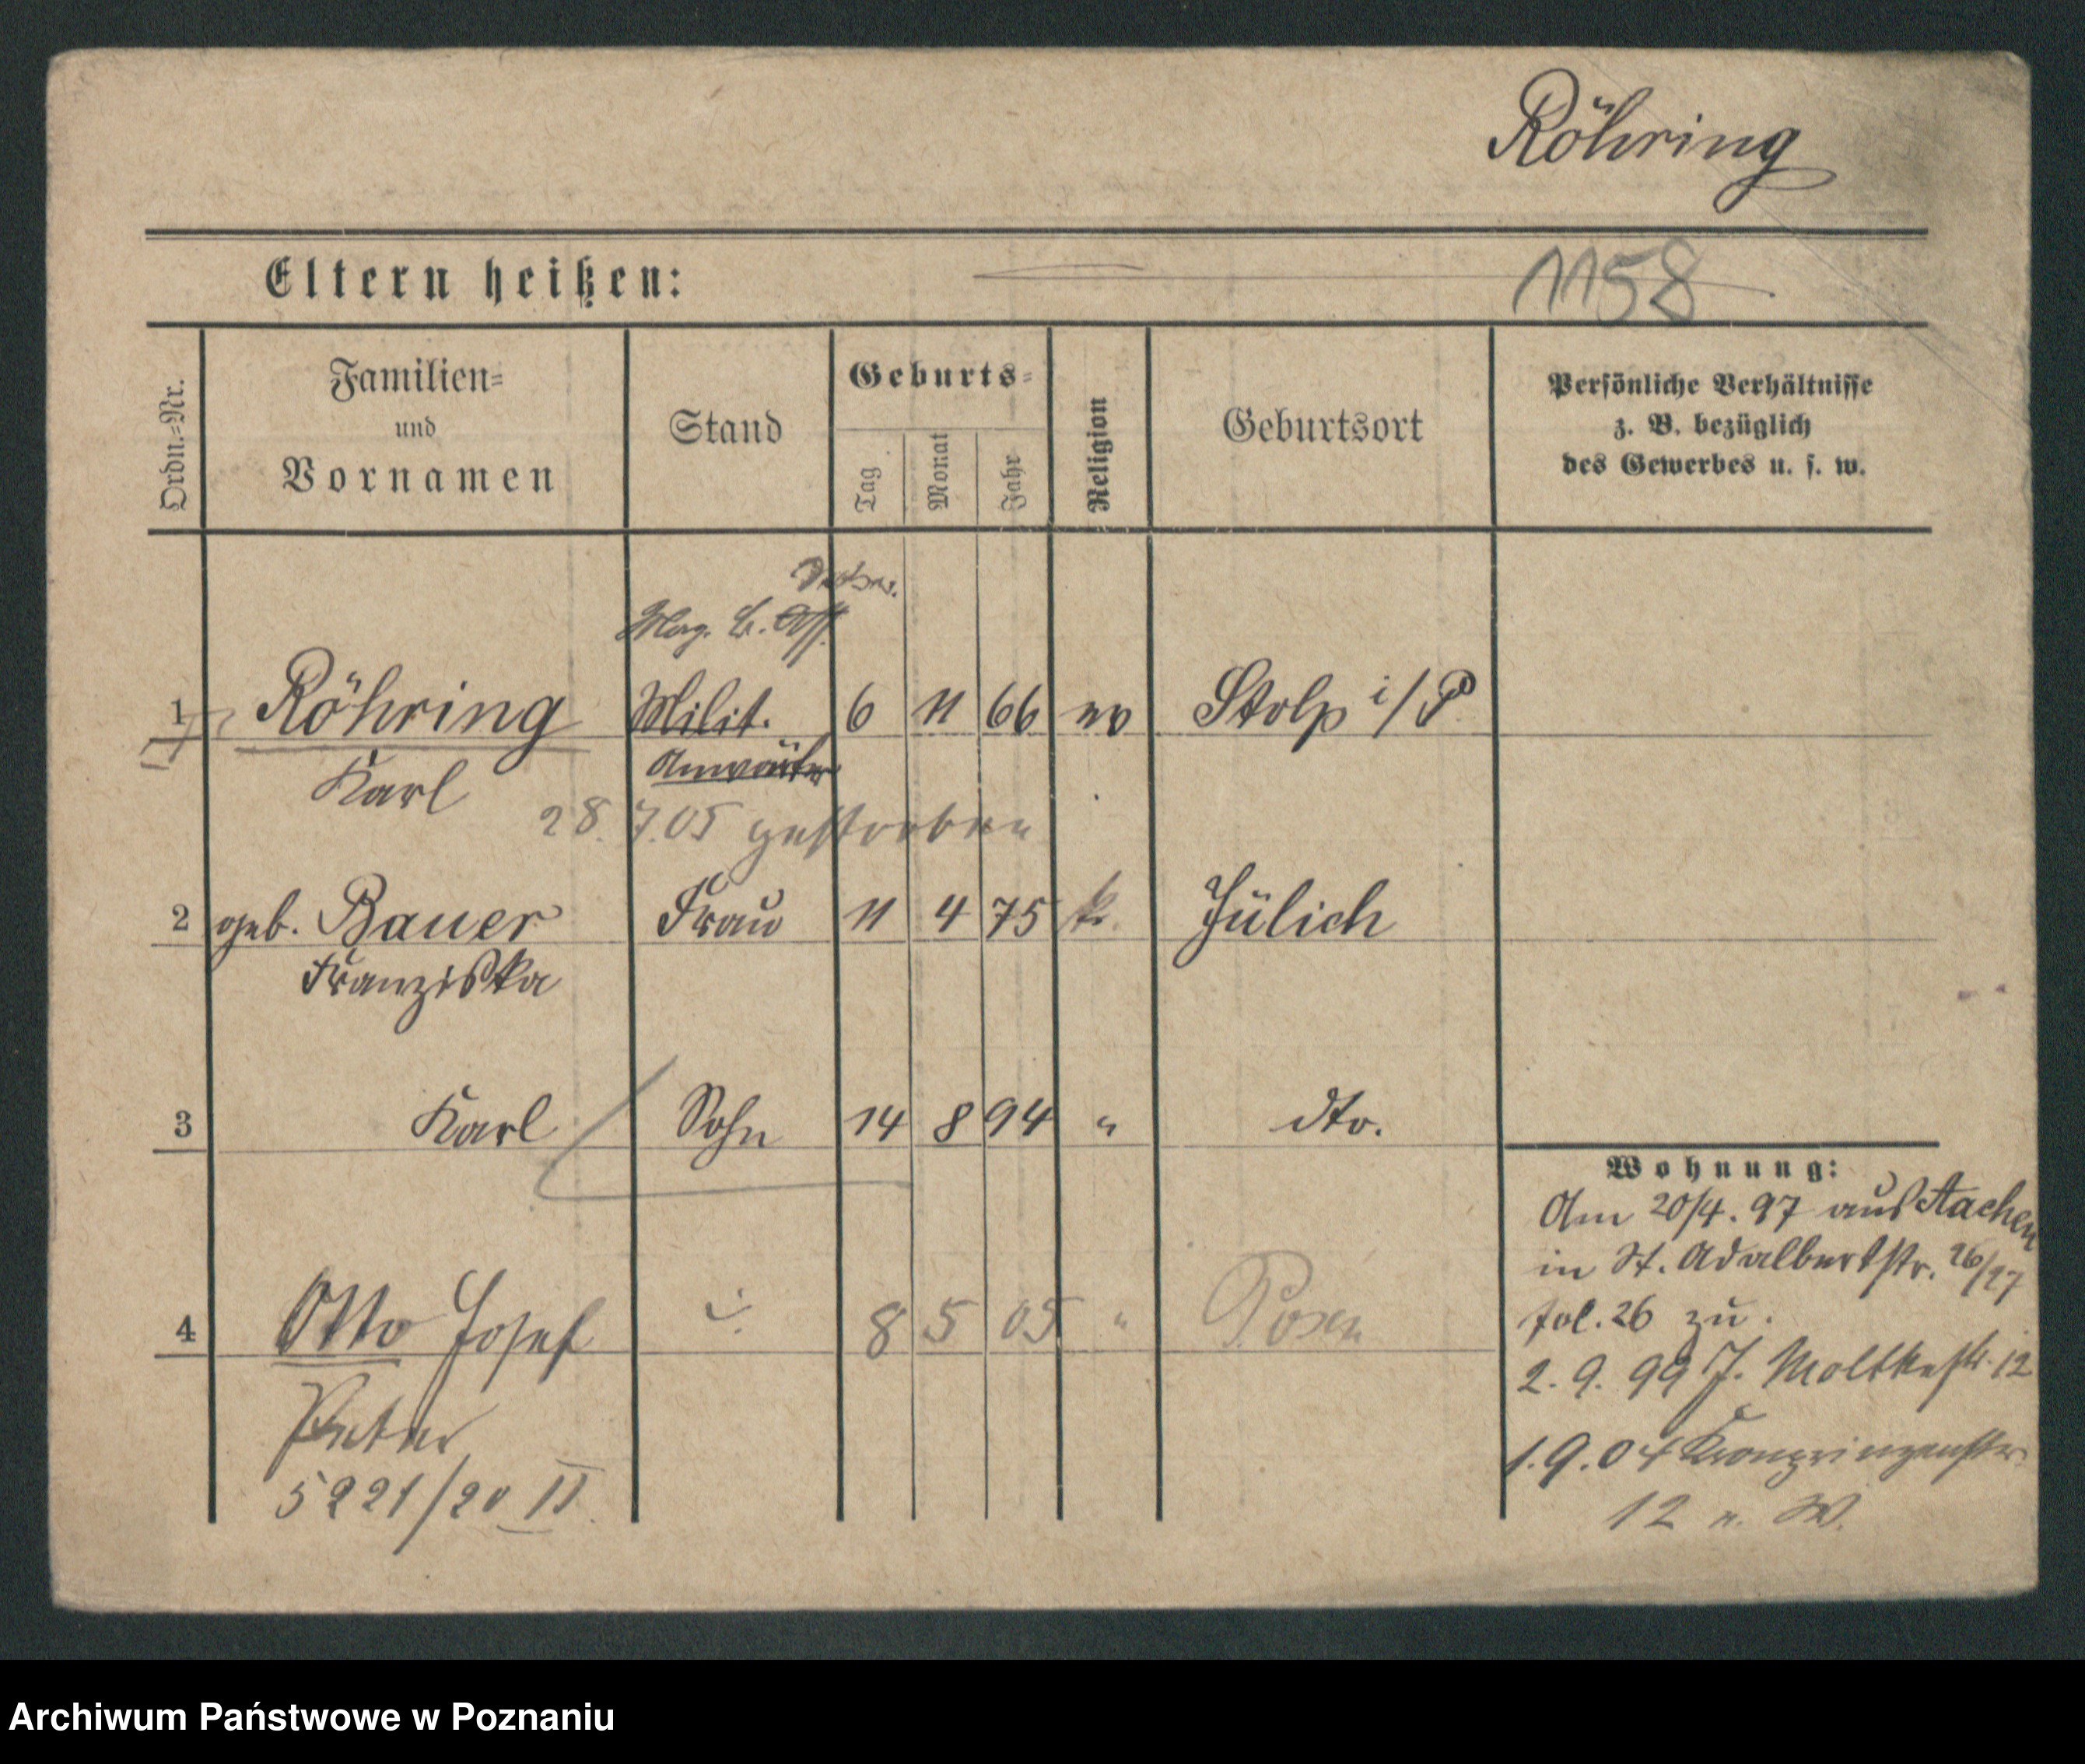 Röhring
Eltern heißen:
1158
Ordn.=Nr.
Familien=
und
Vornamen
Stand
Geburts=
Tag
Monat
Jahr
Religion
Geburtsort
Persönliche Verhältnisse
z. B. bezüglich
des Gewerbes u. s. w.
Mag. B.
1 Röhring Milit. 6 11 66 ev Stolp i/P
Karl Anwärter
28.7.05 gestorben
2 geb. Bauer Frau 11 4 75 k. Jülich
Franziska
3 Karl Sohn 14 8 94 " dto.
Wohnung:
Am 20/4. 97 aus Aachen
in St. Adalbertstr. 26/27
fol. 26 zu.
2. 9. 99 J. Moltkestr. 12
1. 9. 04 Kronprinzenstr.
12 n. W.
4 Otto Josef 8 5 05 " Posen
Peter
5221/20 II
Archiwum Państwowe w Poznaniu